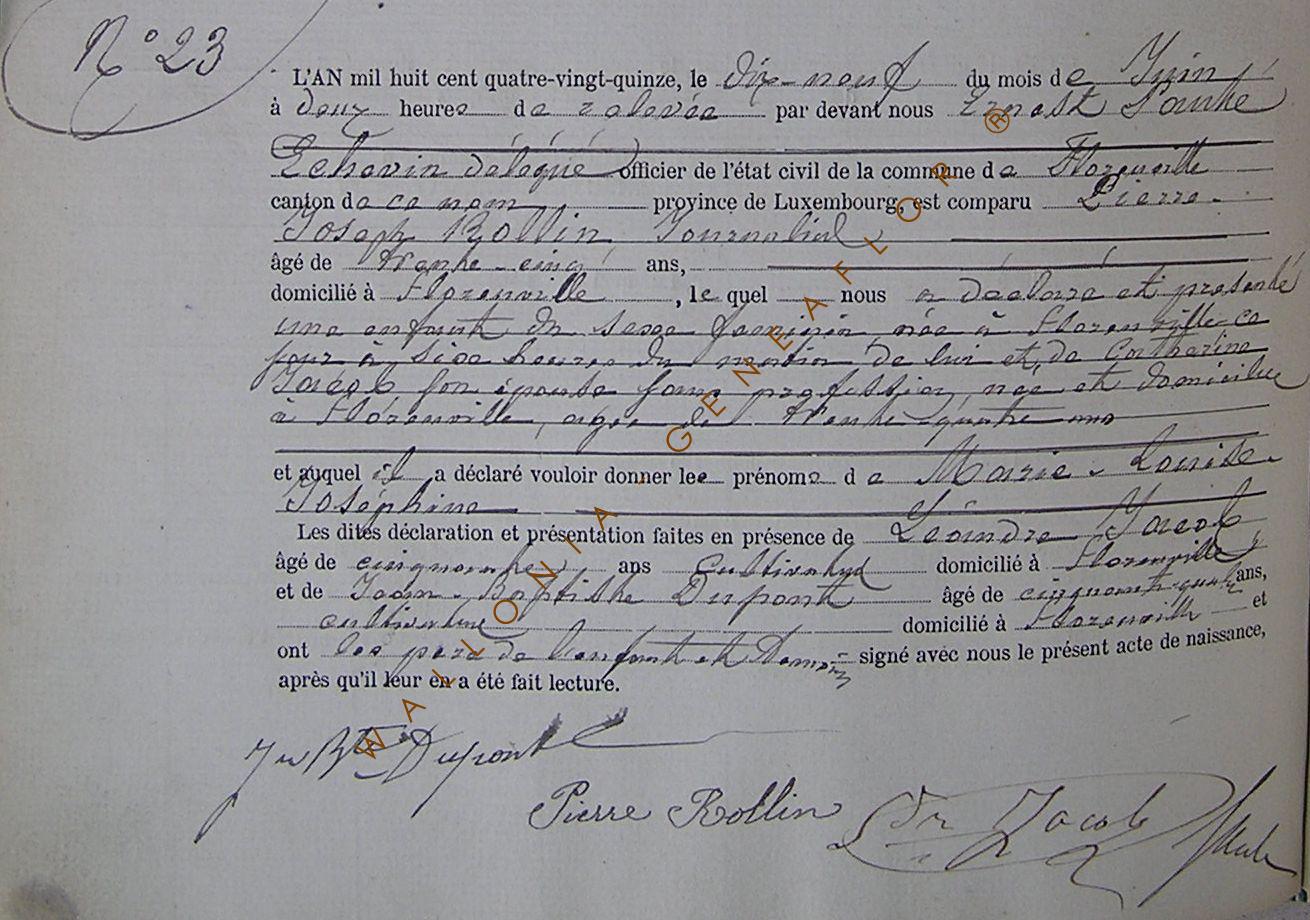 N° 23
L'AN mil huit cent quatre-vingt-quinze, le dix-neuf du mois de Juin
à deux heures de relevée par devant nous Ernest
Echevin délégué officier de l'état civil de la commune de Florenville
canton de ce nom province de Luxembourg, est comparu Pierre-
Joseph Rollin Journalier
âgé de trente-cinq ans,
domicilié à Florenville, lequel nous a déclaré et présenté
une enfant du sexe féminin, née à Florenville ce
jour à six heures du matin de lui et de Catherine
Jacob son épouse sans profession, née et domiciliée
à Florenville, agée de trente-quatre ans
et auquel il a déclaré vouloir donner les prénoms de Marie-Louise-
Joséphine
Les dites déclaration et présentation faites en présence de Léandre Jacob
âgé de cinquante ans Cultivateur domicilié à Florenville
et de Jean-Baptiste Dupont âgé de cinquante-quatre ans,
cultivateur domicilié à Florenville et
ont les père de l'enfant et témoins signé avec nous le présent acte de naissance,
après qu'il leur en a été fait lecture.
Jn Bte Dupont
Pierre Rollin
Jacob
WALLONIA - GENEAFLOR ®